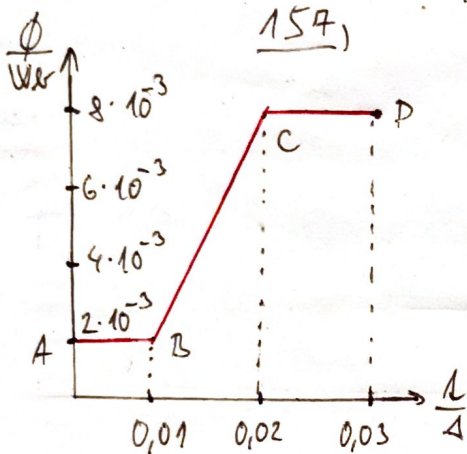 157,
Φ
Wb
8·10⁻³
6·10⁻³
4·10⁻³
2·10⁻³
A
B
C
D
0,01
0,02
0,03
t
s